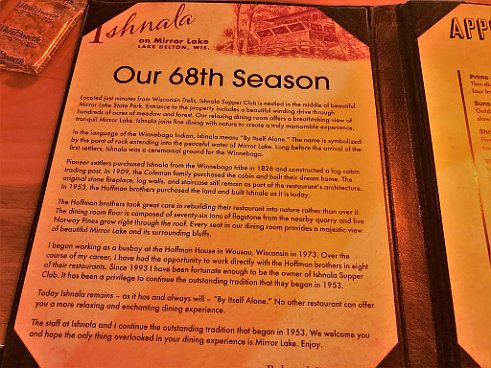 Ishnala
on Mirror Lake
LAKE DELTON, WIS.
Our 68th Season
Located just minutes from Wisconsin Dells, Ishnala Supper Club is nestled in the middle of beautiful
Mirror Lake State Park. Entrance to the property includes a beautiful winding drive through
hundreds of acres of meadow and forest. Our relaxing dining room offers a breathtaking view of
tranquil Mirror Lake. Ishnala joins fine dining with nature to create a truly memorable experience.
In the language of the Winnebago Indian, Ishnala means "By Itself Alone." The name is symbolized
by the point of rock extending into the peaceful water of Mirror Lake. Long before the arrival of the
first settlers, Ishnala was a ceremonial ground for the Winnebago.
Pioneer settlers purchased Ishnala from the Winnebago tribe in 1826 and constructed a log cabin
trading post. In 1909, the Coleman family purchased the cabin and built their dream home. The
original stone fireplace, log walls, and staircase still remain as part of the restaurant's architecture.
In 1953, the Hoffman brothers purchased the land and built Ishnala as it is today.
The Hoffman brothers took great care in rebuilding their restaurant into nature rather than over it.
The dining room floor is composed of seventy-six tons of flagstone from the nearby quarry and live
Norway Pines grow right through the roof. Every seat in our dining room provides a majestic view
of beautiful Mirror Lake and its surrounding bluffs.
I began working as a busboy at the Hoffman House in Wausau, Wisconsin in 1973. Over the
course of my career, I have had the opportunity to work directly with the Hoffman brothers in eight
of their restaurants. Since 1993 I have been fortunate enough to be the owner of Ishnala Supper
Club. It has been a privilege to continue the outstanding tradition that they began in 1953.
Today Ishnala remains – as it has and always will – "By Itself Alone." No other restaurant can offer
you a more relaxing and enchanting dining experience.
The staff at Ishnala and I continue the outstanding tradition that began in 1953. We welcome you
and hope the only thing overlooked in your dining experience is Mirror Lake. Enjoy.
APP
Prime
Thin
four
Sunse
Gold
slow
Shr
Five